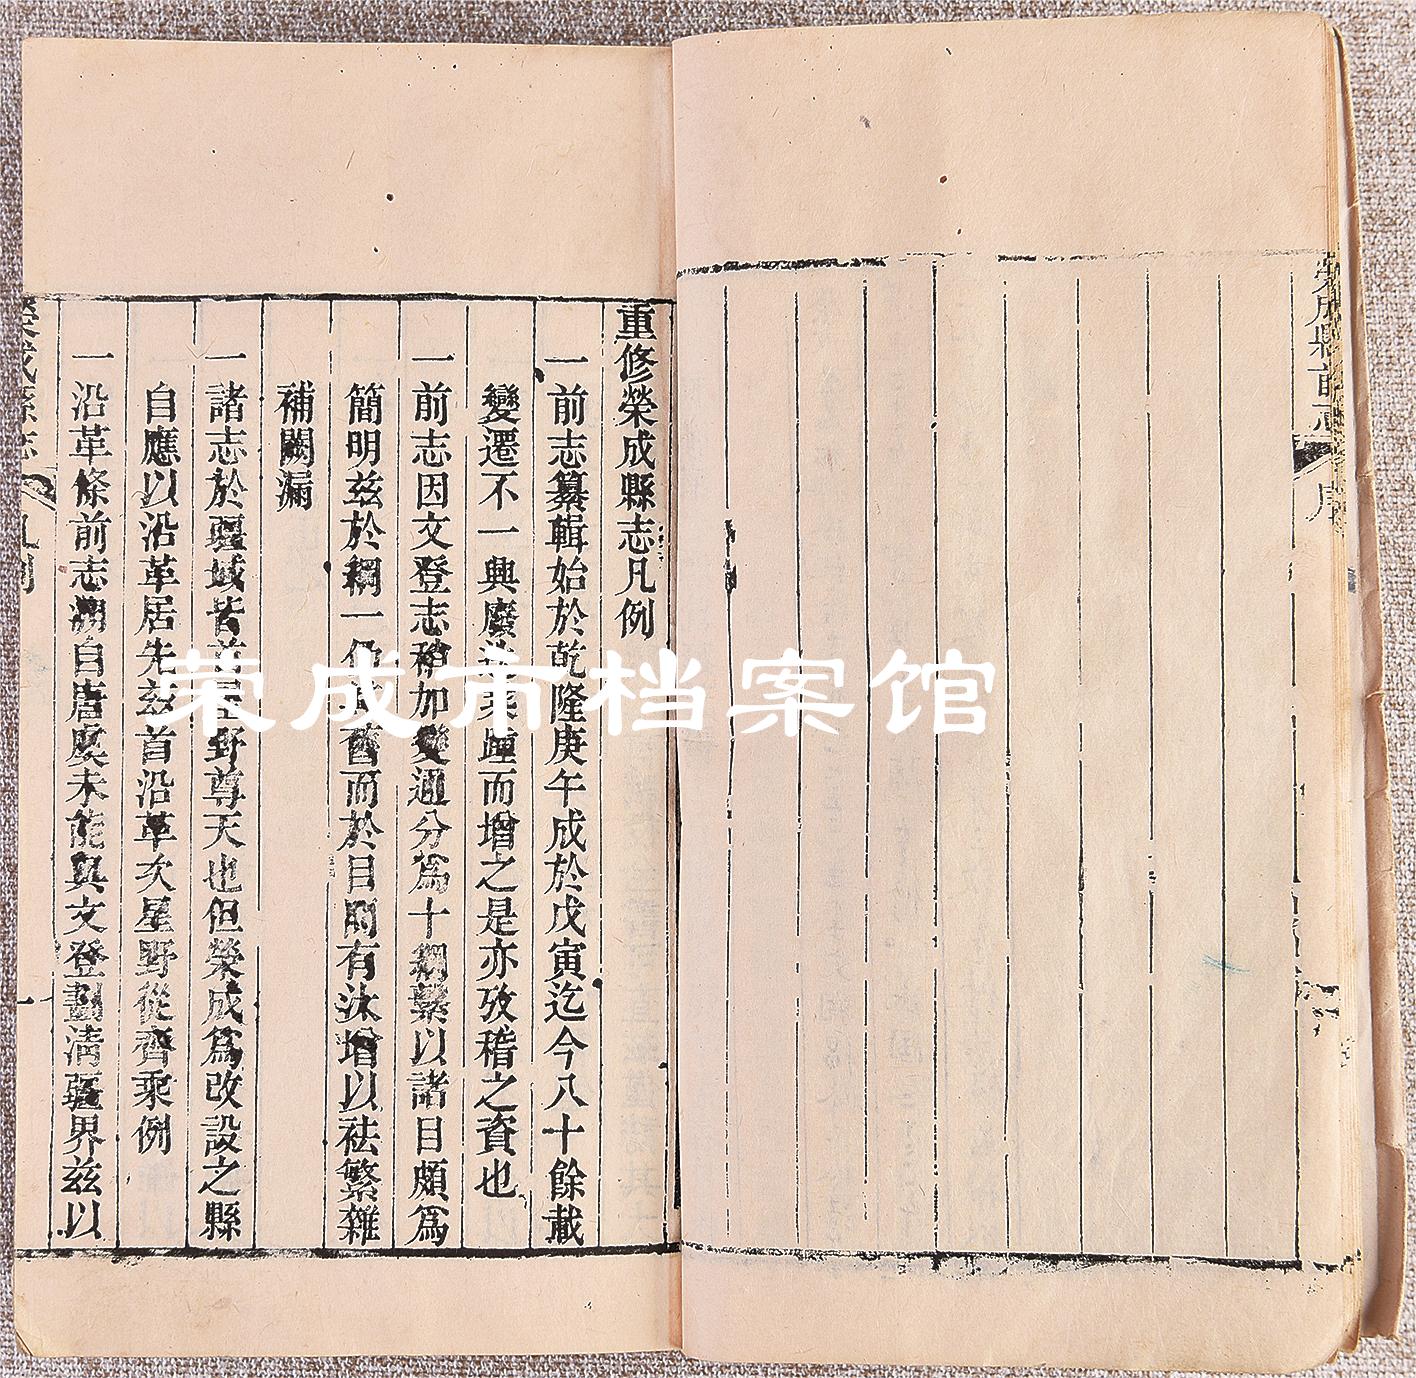 榮成縣前志 序
重修榮成縣志凡例
一前志纂輯始於乾隆庚午成於戊寅迄今八十餘載
變遷不一興廢迭乘踵而增之是亦攷稽之資也
一前志因文登志稍加變通分爲十綱繫以諸目頗爲
簡明茲於綱一仍其舊而於目有汰增以祛繁雜
補闕漏
一諸志於疆域皆首星野尊天也但榮成爲改設之縣
自應以沿革居先茲首沿革次星野從齊乘例
一沿革條前志溯自唐虞未能與文登劃清疆界茲以
榮成縣志 凡例 一
荣成市档案馆